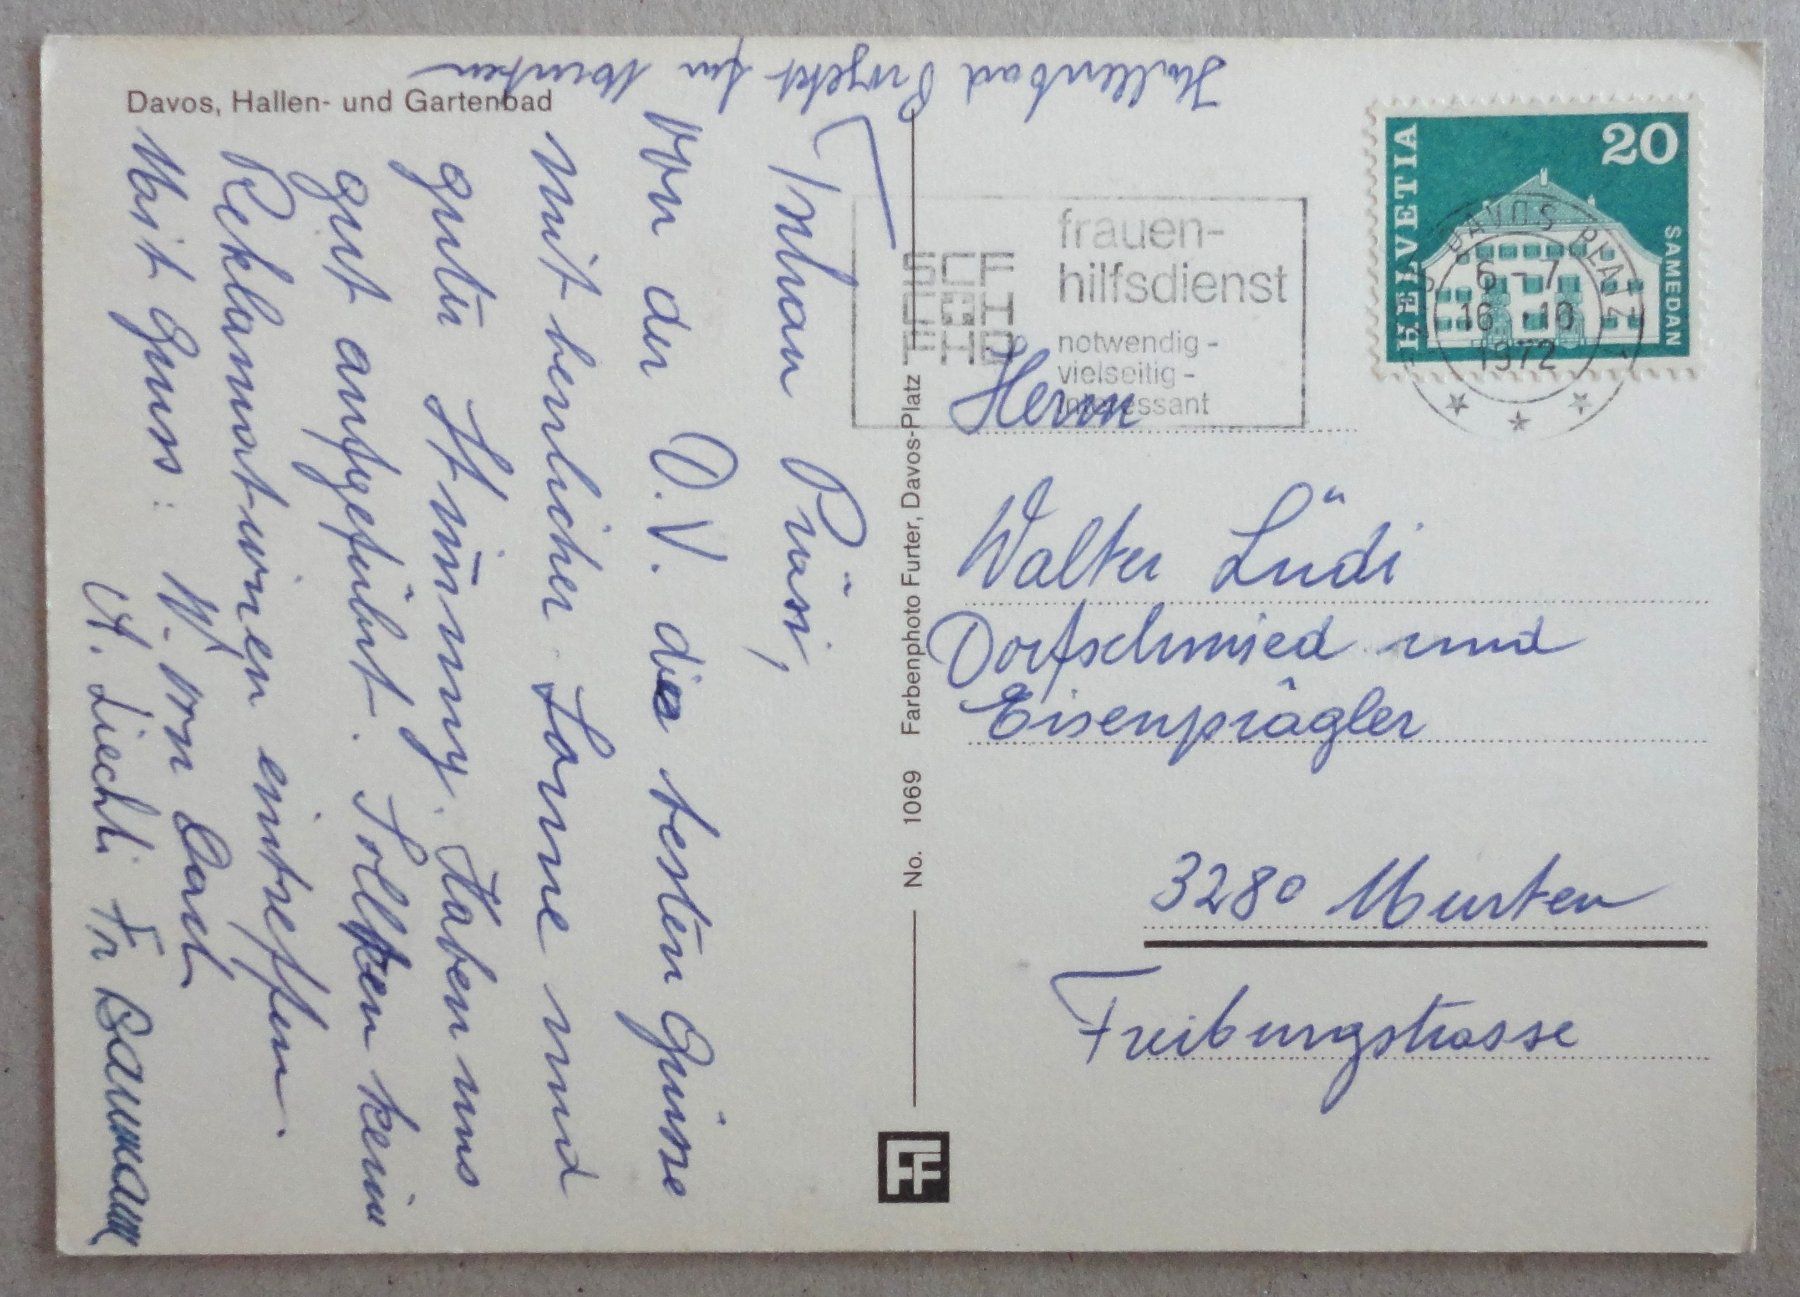 Davos, Hallen- und Gartenbad
Hallenbad Projekt für Murten
Tschau Püssi,
Von der D.V. die besten Grüsse
mit herrlicher Sonne und
guter Stimmung. Haben uns
gut aufgeführt. Sollten keine
Reklamationen eintreffen.
Mit Gruss: W. von Dach
A. Liechti Fr Baumann
No. 1069 Farbenphoto Furter, Davos-Platz
FF
SCF
FHD
frauen-
hilfsdienst
notwendig -
vielseitig -
interessant
HELVETIA
20
SAMEDAN
DAVOS PLATZ
6-7
16 - 10
1972
Herrn
Walter Lüdi
Dorfschmied und
Eisenprägler
3280 Murten
Freiburgstrasse